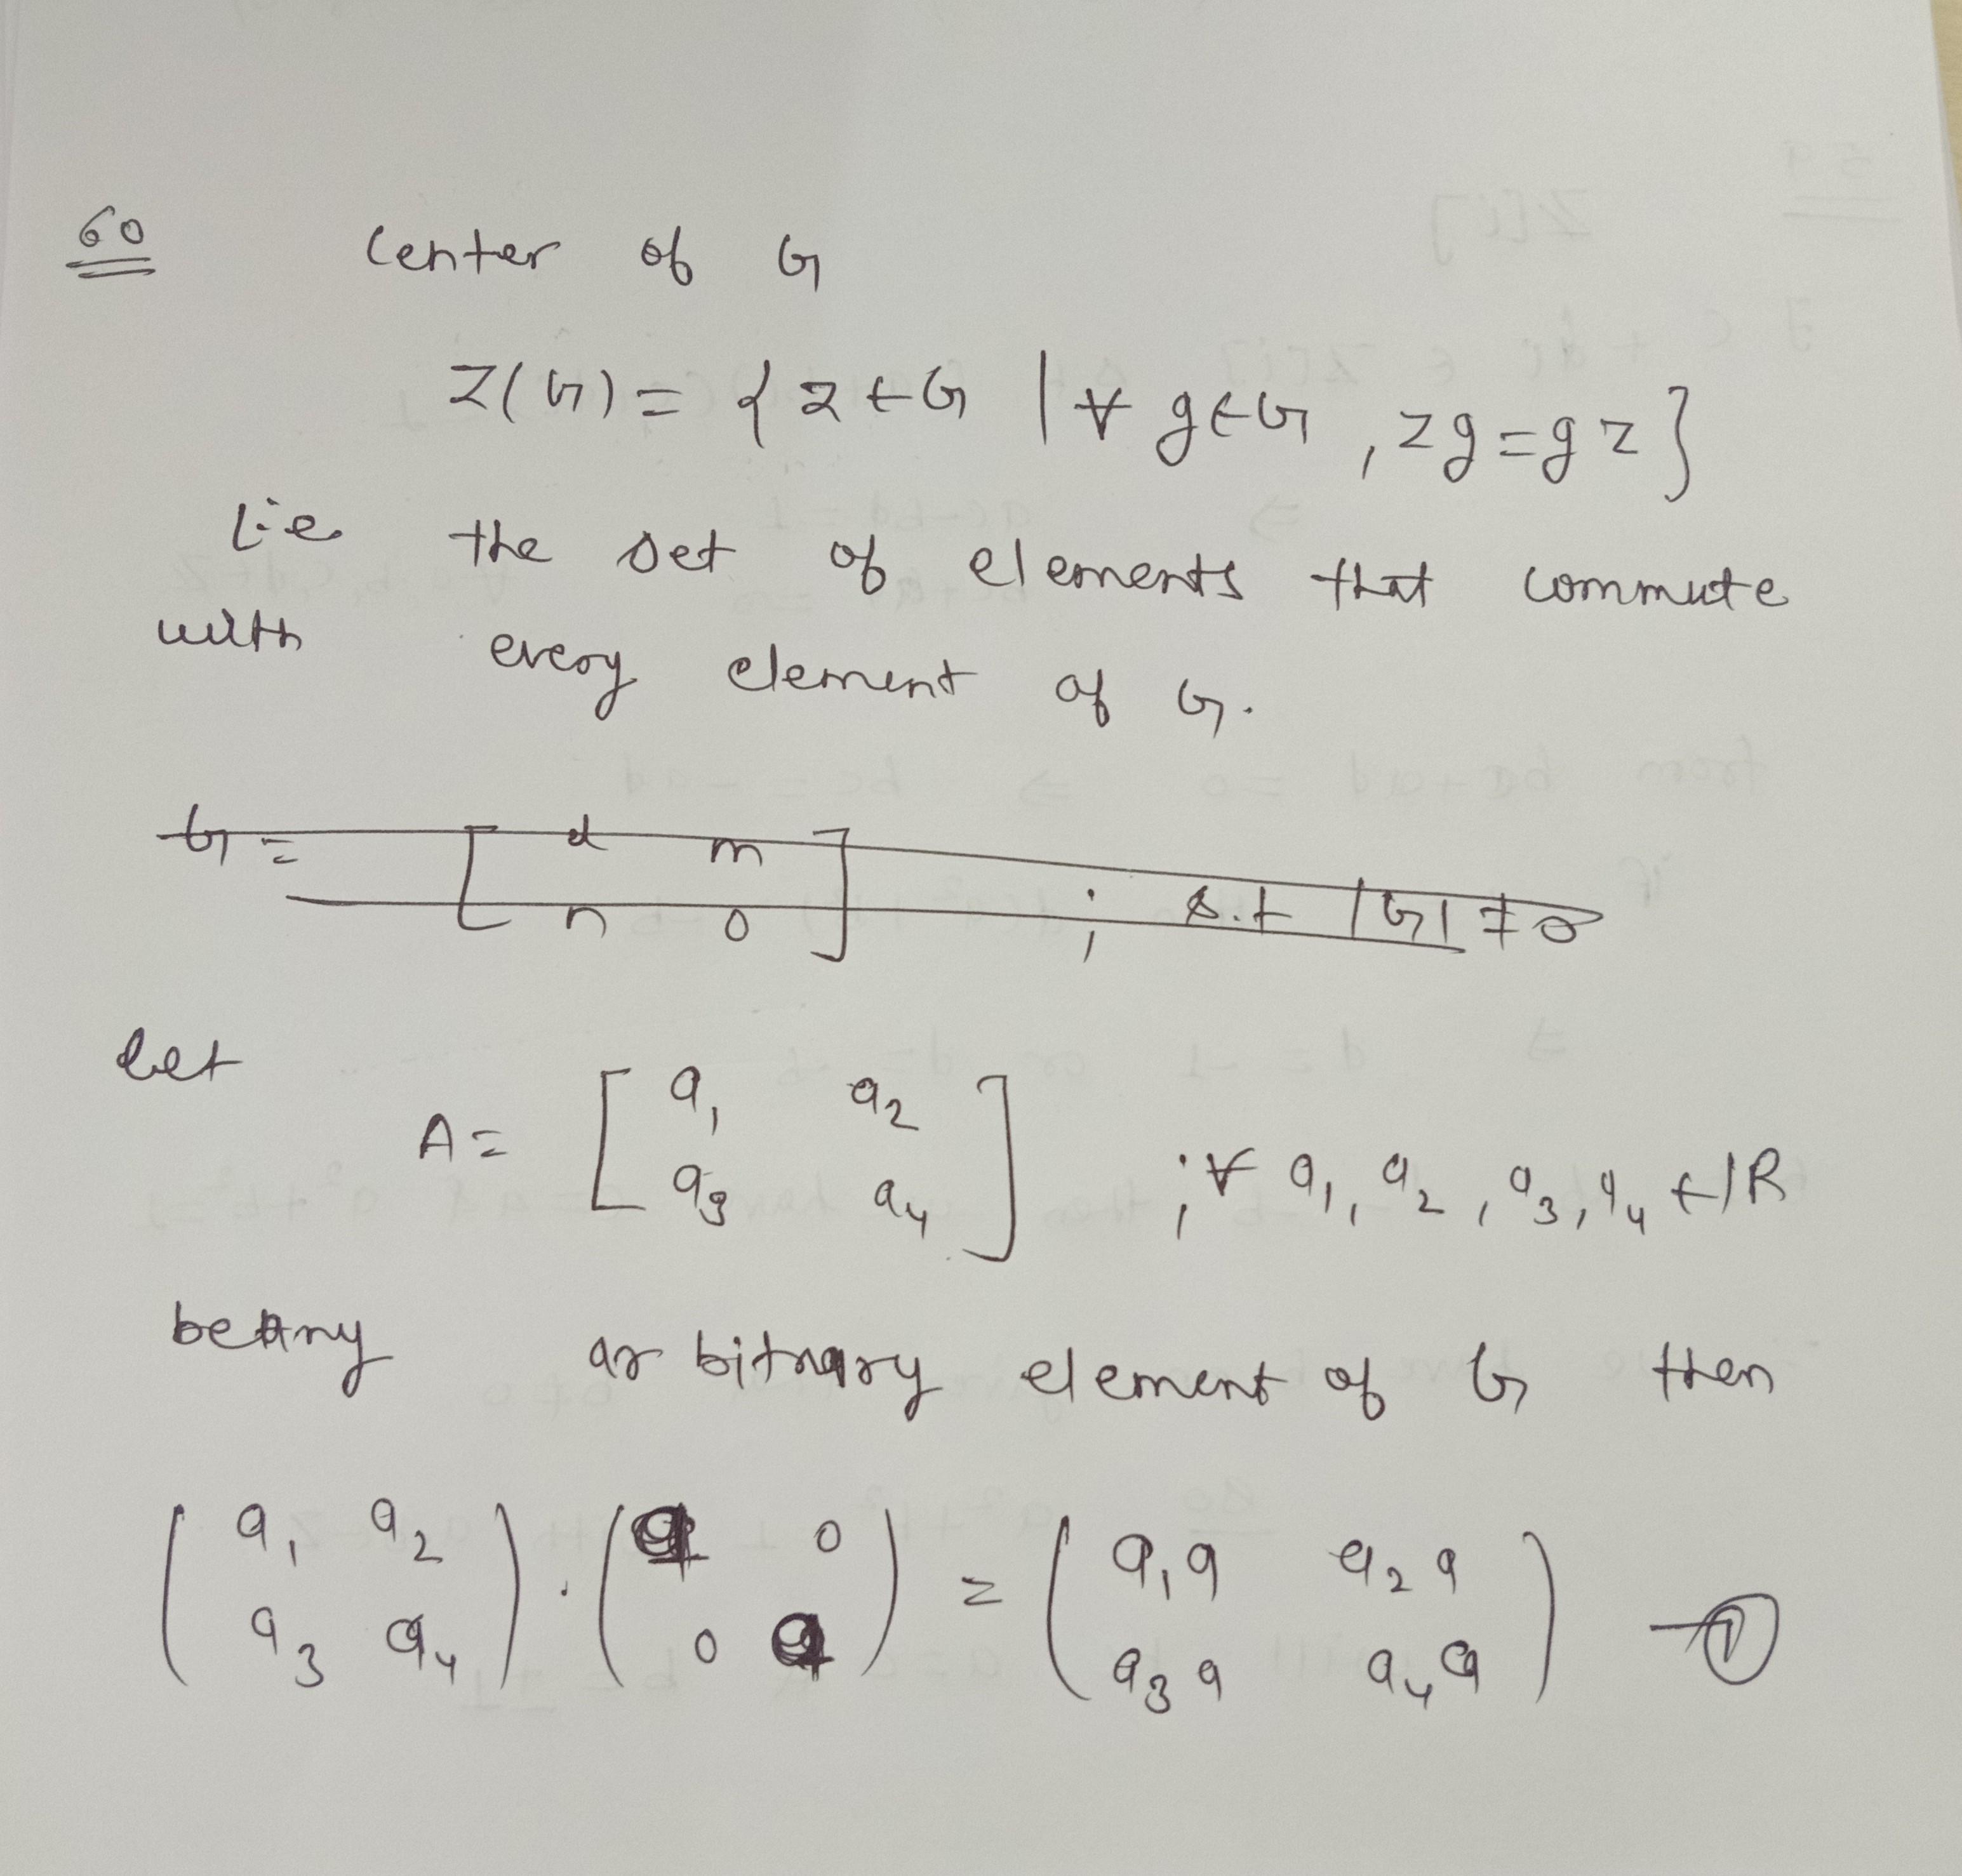 60 Center of G
Z(G) = { z ∈ G | ∀ g ∈ G , zg = gz }
i.e the set of elements that commute
with every element of G.
G = [ d m ; s.t |G| ≠ 0
n o ]
Let
A = [ a₁ a₂
a₃ a₄ ] ; ∀ a₁, a₂, a₃, a₄ ∈ ℝ
be any arbitrary element of G then
( a₁ a₂ ) . ( a 0 ) = ( a₁a a₂a ) — ①
( a₃ a₄ ) ( 0 a ) ( a₃a a₄a )